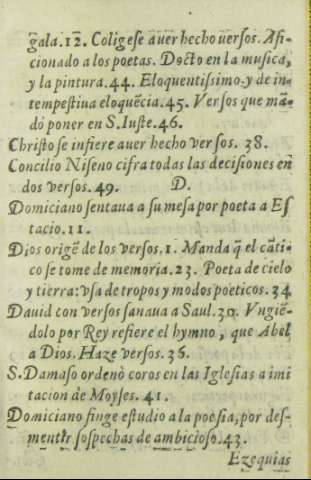 g̃ala.12. Coligese auer hecho uersos. Afi-
cionado a los poetas. Docto en la musica,
y la pintura.44. Eloquentissimo.y de in-
tempestiua eloquẽcia.45. Versos que mã-
dó poner en S.Iuste.46.
Christo se infiere auer hecho versos. 38.
Concilio Niseno cifra todas las decisiones en
dos versos.49. D.
Domiciano sentaua a su mesa por poeta a Es
tacio.11.
Dios origẽ de los versos.1. Manda q̃ el cãti-
co se tome de memoria.23. Poeta de cielo
y tierra: vsa de tropos y modos poeticos. 34
Dauid con versos sanaua a Saul.30. Vngiẽ-
dolo por Rey refiere el hymno, que Abel
a Dios. Haze versos. 36.
S.Damaso ordenò coros en las Iglesias a imi
tacion de Moyses. 41.
Domiciano finge estudio a la poesia, por des-
mentir sospechas de ambicioso.43.
Ezequias